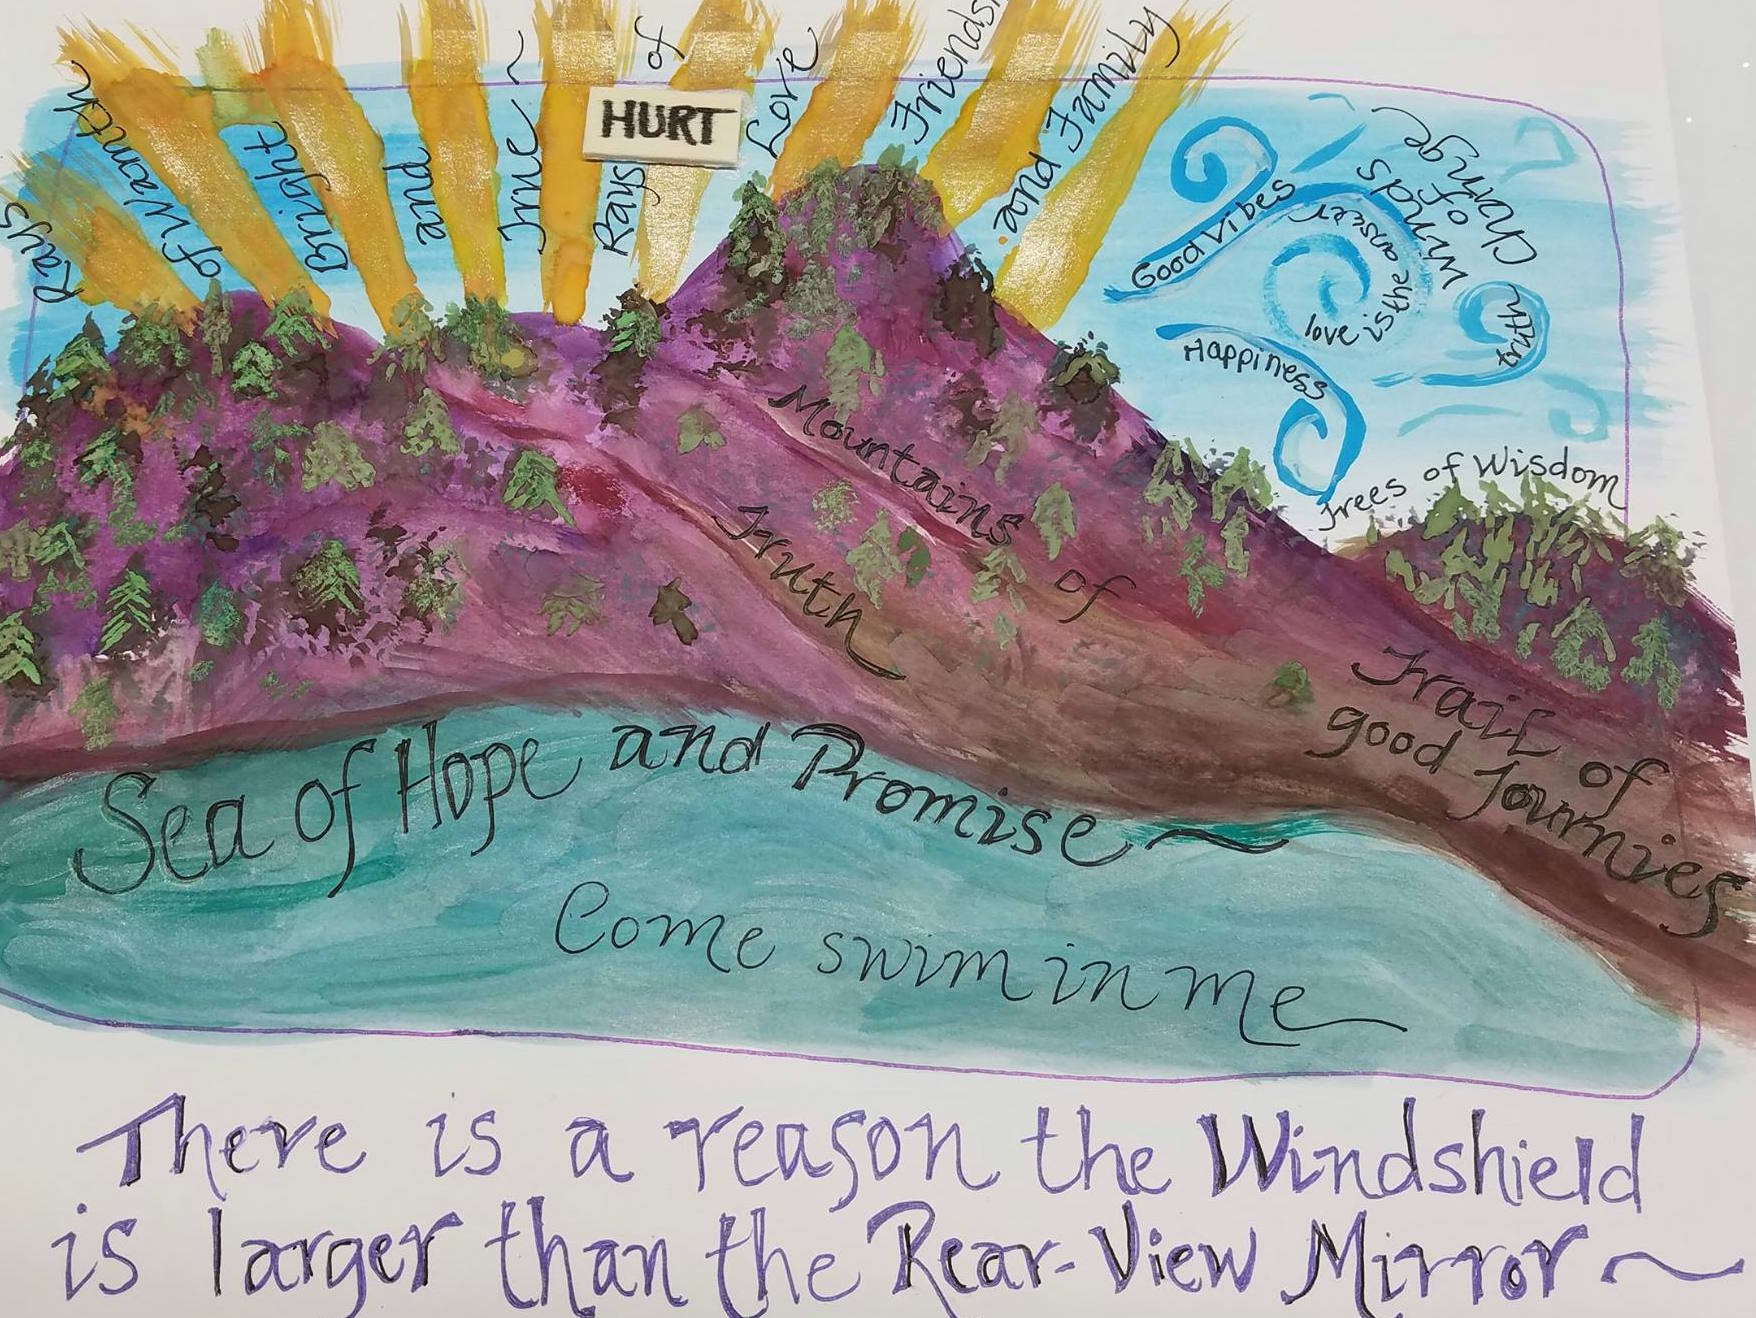 Rays of Warmth
Bright
and
True ~
HURT
Rays of Love
Friends
and Family
Good vibes
love is the answer
Winds of Change
truth
Happiness
Trees of Wisdom
Mountains of
Truth
Trail of
good Journies
Sea of Hope and Promise ~
Come swim in me
There is a reason the Windshield
is larger than the Rear-View Mirror ~